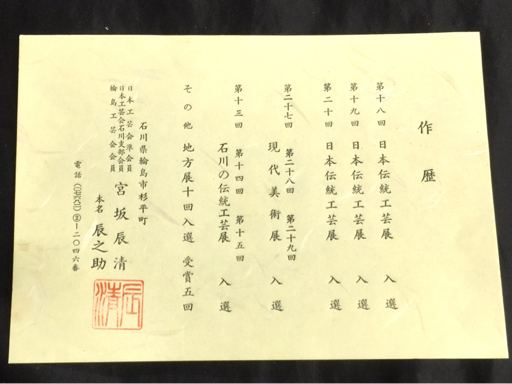 作歴
第十八回 日本伝統工芸展 入選
第十九回 日本伝統工芸展 入選
第二十回 日本伝統工芸展 入選
第二十七回 第二十八回 第二十九回
現代美術展 入選
第十三回 第十四回 第十五回
石川の伝統工芸展 入選
その他 地方展十回入選 受賞五回
石川県輪島市杉平町
日本工芸会準会員
日本工芸会石川支部会員
輪島工芸会会員
宮坂辰清
本名 辰之助
電話 ②一二〇四六番
辰清